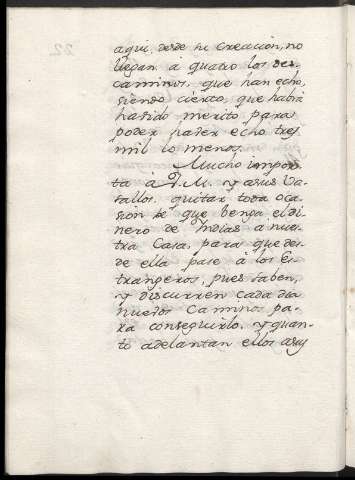 aqui, desde su creacion, no
llegan à quatro los des-
caminos, que han echo,
siendo cierto, que havia
havido merito para
poder haver echo tres
mil lo menos.
Mucho impor-
ta à V.M. y asus Va-
sallos, quitar toda oca-
sion de que benga el di-
nero de Indias à nues-
tra Casa, para que des-
de ella pase à los Es-
trangeros, pues saben,
y discurren cada dia
nuevos Caminos pa-
ra conseguirlo, y quan-
to adelantan ellos asus